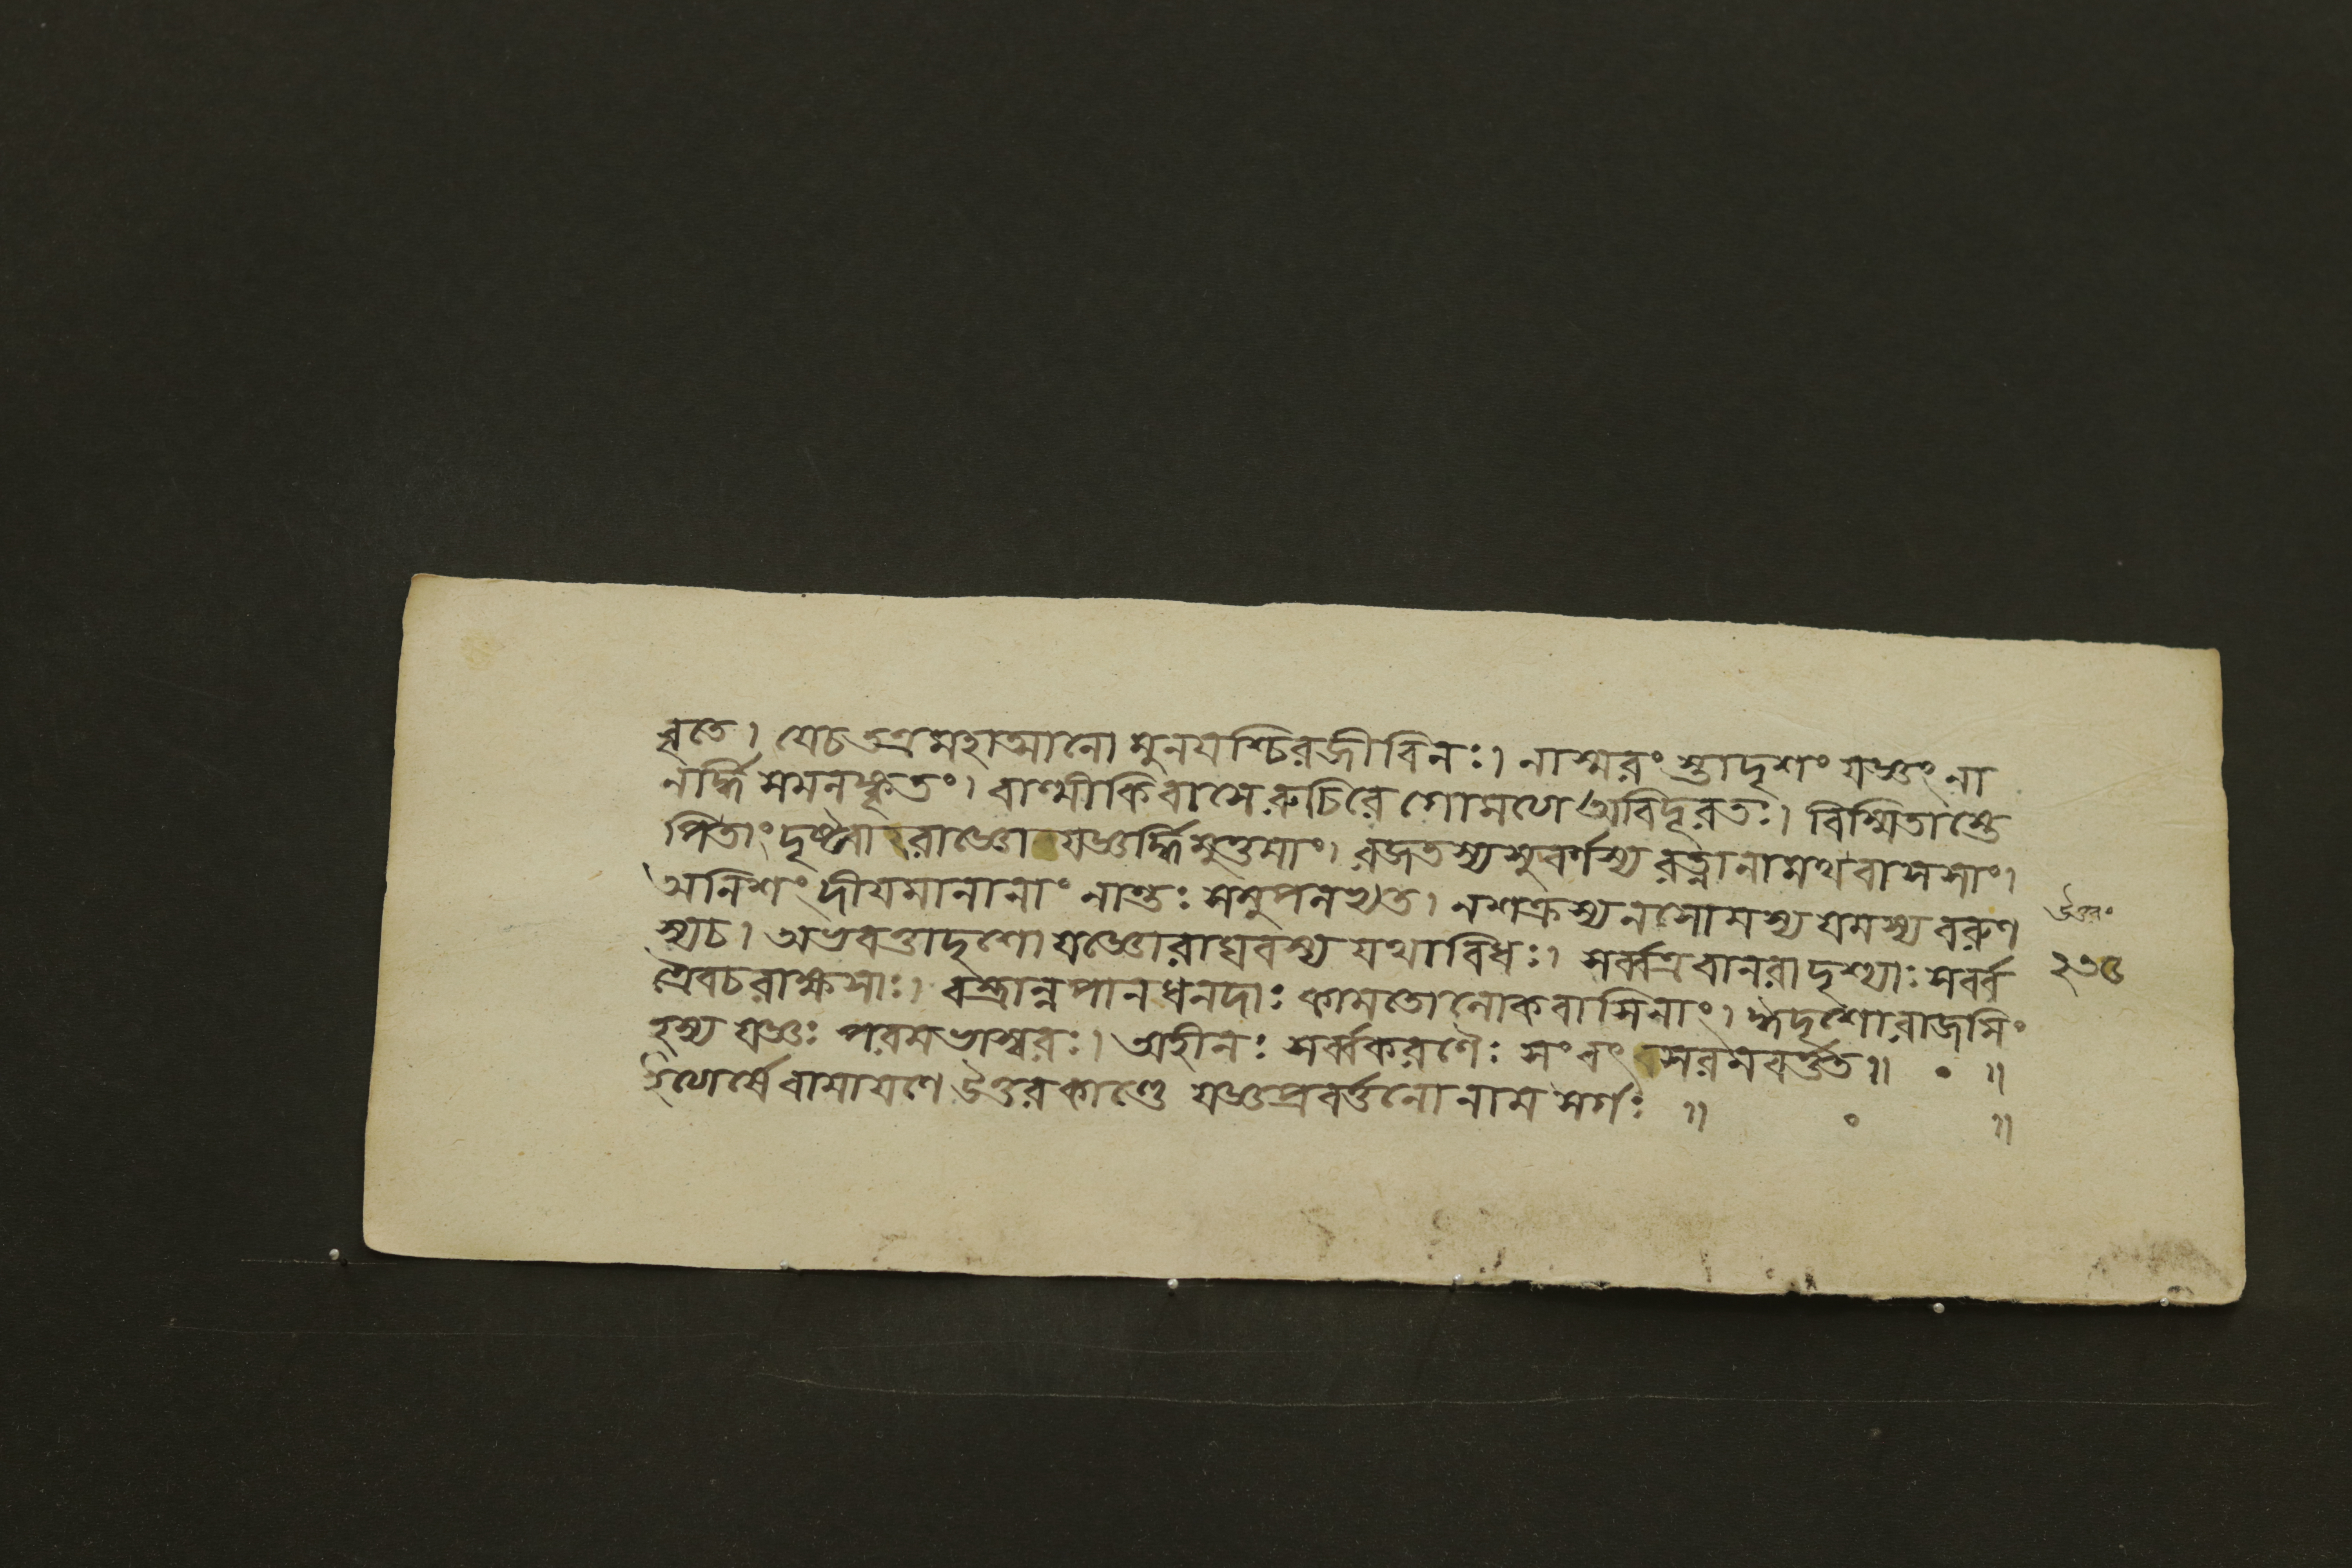 বৃতে। যেচতত্রমহাত্মানো মুনযশ্চিরজীবিনঃ। নাস্মরং স্তাদৃশং যজ্ঞং না
নর্দ্ধি সেমনঙ্কৃতং। বাল্মীকিবাসে রুচিরে গোমথে অবিদূরতঃ। বিস্মিতাস্তে
পিতাং দৃষ্ট্বা রাজ্ঞো যজ্ঞর্দ্ধিমুত্তমাং। রজতস্যসুবর্ণস্য রত্নানামথবাসসাং।
অনিশং দীযমানানাং নান্তঃ সমুপলভ্যতে। নশক্রস্যনসোমস্য যমস্য বরুণ
স্যচ। অভবত্তাদৃশো যজ্ঞোরাঘবস্য যথাবিধঃ। সর্ব্বত্রবানরাদৃশ্যাঃ সর্ব্ব
ত্রৈবচরাক্ষসাঃ। বস্ত্রান্নপানধনদাঃ কামতোলোকবাসিনাং। ঈদৃশোরাজসিং
হস্য যজ্ঞঃ পরমভাস্বরঃ। অহীনঃ সর্ব্বকরণৈঃ সংবৎসরমবর্ত্তত॥ ॰ ॥
ইত্যার্ষে রামাযণে উত্তরকাণ্ডে যজ্ঞপ্রবর্ত্তনো নাম সর্গঃ ॥ ॰ ॥
উত্তর॰
২৩৫